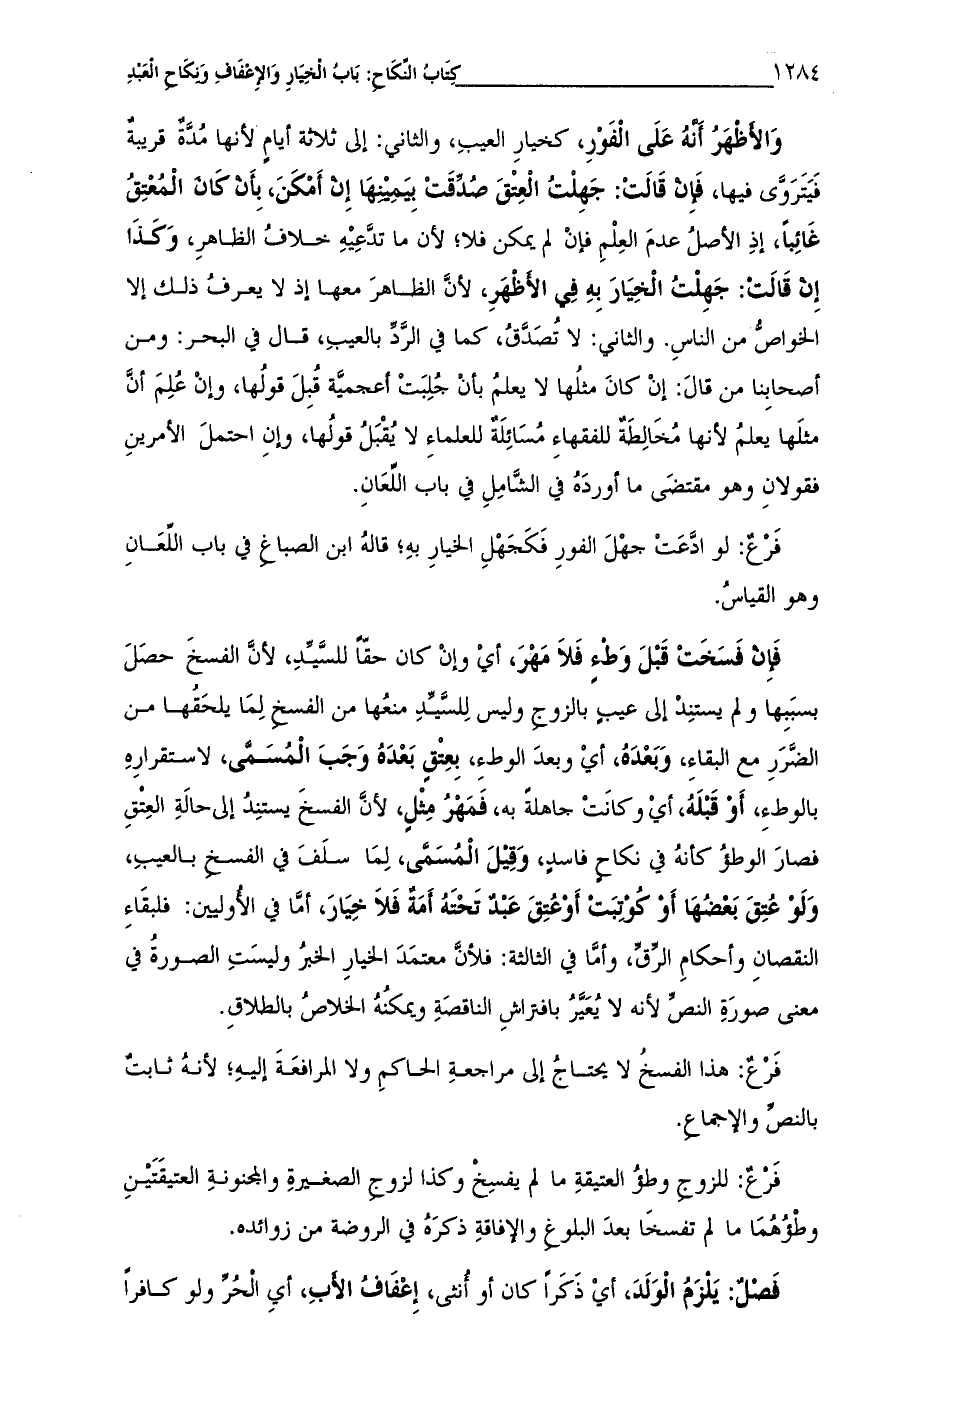 ١٢٨٤ كِتَابُ النِّكَاحِ: بَابُ الْخِيَارِ وَالإِعْفَافِ وَنِكَاحِ الْعَبْدِ
وَالأَظْهَرُ أَنَّهُ عَلَى الْفَوْرِ، كخيارِ العيبِ، والثاني: إلى ثلاثة أيامٍ لأنها مُدَّةٌ قريبةٌ
فَيَتَرَوَّى فيها، فَإِنْ قَالَتْ: جَهِلْتُ الْعِتْقَ صُدِّقَتْ بِيَمِيْنِهَا إِنْ أَمْكَنَ، بِأَنْ كَانَ الْمُعْتِقُ
غَائِباً، إذِ الأصلُ عدمَ العِلْمِ فإنْ لم يمكن فلا؛ لأن ما تدَّعِيْهِ خلافُ الظاهرِ، وَكَذَا
إِنْ قَالَتْ: جَهِلْتُ الْخِيَارَ بِهِ فِي الأَظْهَرِ، لأنَّ الظاهرَ معها إذ لا يعرفُ ذلك إلا
الخواصُّ من الناسِ. والثاني: لا تُصَدَّقُ، كما في الرَّدِّ بالعيبِ، قال في البحر: ومن
أصحابنا من قالَ: إنْ كانَ مثلُها لا يعلمُ بأنْ جُلِبَتْ أعجميَّة قُبِلَ قولُها، وإنْ عُلِمَ أنَّ
مثلَها يعلمُ لأنها مُخَالِطَةٌ للفقهاءِ مُسَائِلَةٌ للعلماءِ لا يُقْبَلُ قولُها، وإنِ احتملَ الأمرينِ
فقولانِ وهو مقتضَى ما أوردَهُ في الشَّامِلِ في باب اللِّعَانِ.
فَرْعٌ: لو ادَّعَتْ جهْلَ الفورِ فَكَجَهْلِ الخيارِ بهِ؛ قالهُ ابن الصباغِ في باب اللِّعَانِ
وهو القياسُ.
فَإِنْ فَسَخَتْ قَبْلَ وَطْءٍ فَلاَ مَهْرَ، أيْ وإنْ كان حقّاً للسَّيِّدِ، لأنَّ الفسخَ حصَلَ
بسبَبِها ولم يستنِدْ إلى عيبٍ بالزوجِ وليس لِلسَّيِّدِ منعُها من الفسخِ لِمَا يلحَقُها من
الضَّرَرِ مع البقاءِ، وَبَعْدَهُ، أيْ وبعدَ الوطءِ، بِعِتْقٍ بَعْدَهُ وَجَبَ الْمُسَمَّى، لاستقرارِهِ
بالوطءِ، أَوْ قَبْلَهُ، أيْ وكانَتْ جاهلةً به، فَمَهْرُ مِثْلٍ، لأنَّ الفسخَ يستنِدُ إلى حالَةِ العِتْقِ
فصارَ الوطؤُ كأنهُ في نكاحٍ فاسدٍ، وَقِيْلَ الْمُسَمَّى، لِمَا سلَفَ في الفسخِ بالعيبِ،
وَلَوْ عُتِقَ بَعْضُهَا أَوْ كُوْتِبَتْ أَوْ عُتِقَ عَبْدٌ تَحْتَهُ أَمَةٌ فَلاَ خِيَارَ، أمَّا في الأُوليين: فلبقَاءِ
النقصانِ وأحكامِ الرِّقِّ، وأمَّا في الثالثة: فلأنَّ معتمَدَ الخيارِ الخبرُ وليسَتِ الصورةُ في
معنى صورَةِ النصِّ لأنه لا يُعَيَّرُ بافتراشِ الناقصَةِ ويمكنُهُ الخلاصُ بالطلاقِ.
فَرْعٌ: هذا الفسخُ لا يحتاجُ إلى مراجعةِ الحاكمِ ولا المرافعَةَ إليهِ؛ لأنهُ ثابتٌ
بالنصِّ والإجماعِ.
فَرْعٌ: للزوجِ وطؤُ العتيقةِ ما لم يفسِخْ وكذا لزوجِ الصغيرةِ والمجنونةِ العتيقَتَيْنِ
وطْؤُهُمَا ما لم تفسخَا بعدَ البلوغِ والإفاقةِ ذكرَهُ في الروضة من زوائده.
فَصْلٌ: يَلْزَمُ الْوَلَدَ، أيْ ذَكَراً كان أو أُنثى، إِعْفَافُ الأَبِ، أي الْحُرِّ ولو كافراً